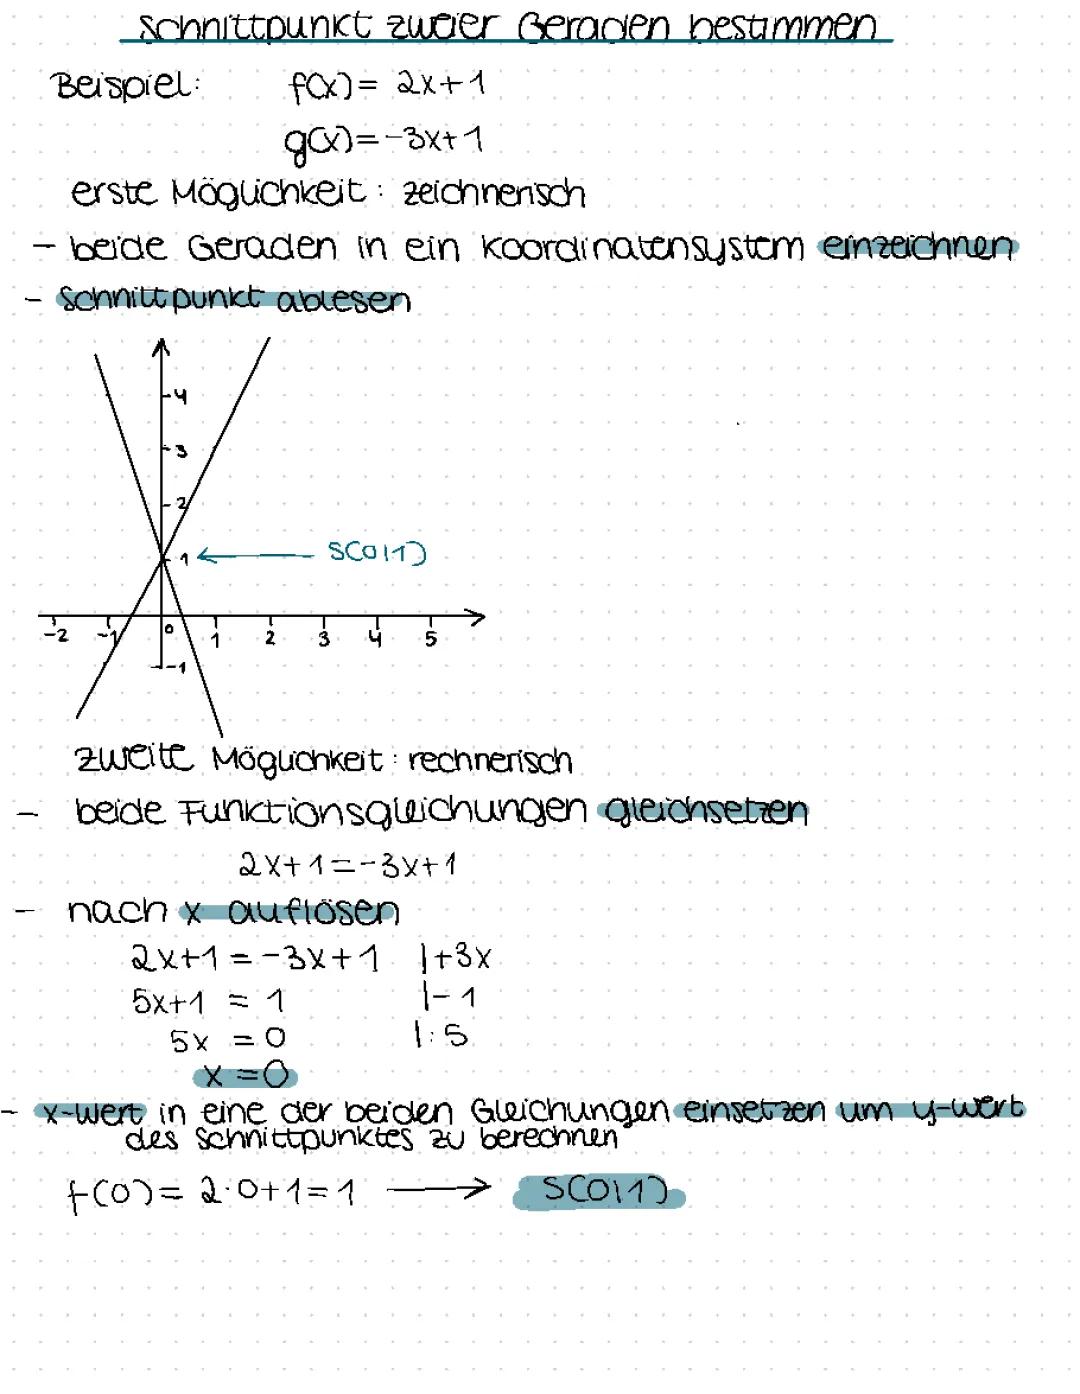 Schnittpunkt zweier Geraden bestimmen
Beispiel: f(x)= 2x+1
g(x)=-3x+1
erste Möglichkeit: zeichnerisch
- beide Geraden in ein Koordinatensystem einzeichnen
- Schnittpunkt ablesen
4
3
2
1 S(0|1)
-2 -1 0 1 2 3 4 5
-1
zweite Möglichkeit: rechnerisch
- beide Funktionsgleichungen gleichsetzen
2x+1=-3x+1
- nach x auflösen
2x+1=-3x+1 |+3x
5x+1 = 1 |-1
5x = 0 |:5
x=0
- x-Wert in eine der beiden Gleichungen einsetzen um y-Wert
des Schnittpunktes zu berechnen
f(0)= 2·0+1=1 → S(0|1)